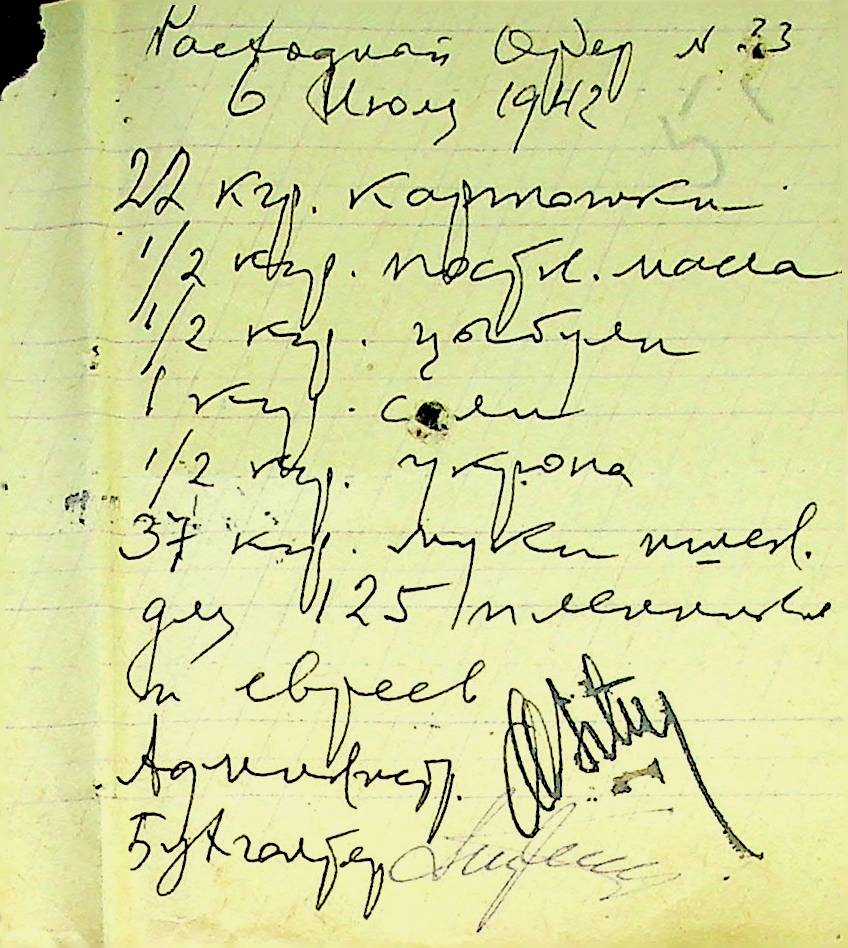 Расходный Ордер N 33
6 Июля 1942
22 кгр. картошки
1/2 кгр. постн. масла
1/2 кгр. цыбули
1 кгр. соли
1/2 кгр. укропа
37 кгр. муки пшен.
для 125 пленных
и евреев
Администр.
Бухгалтер